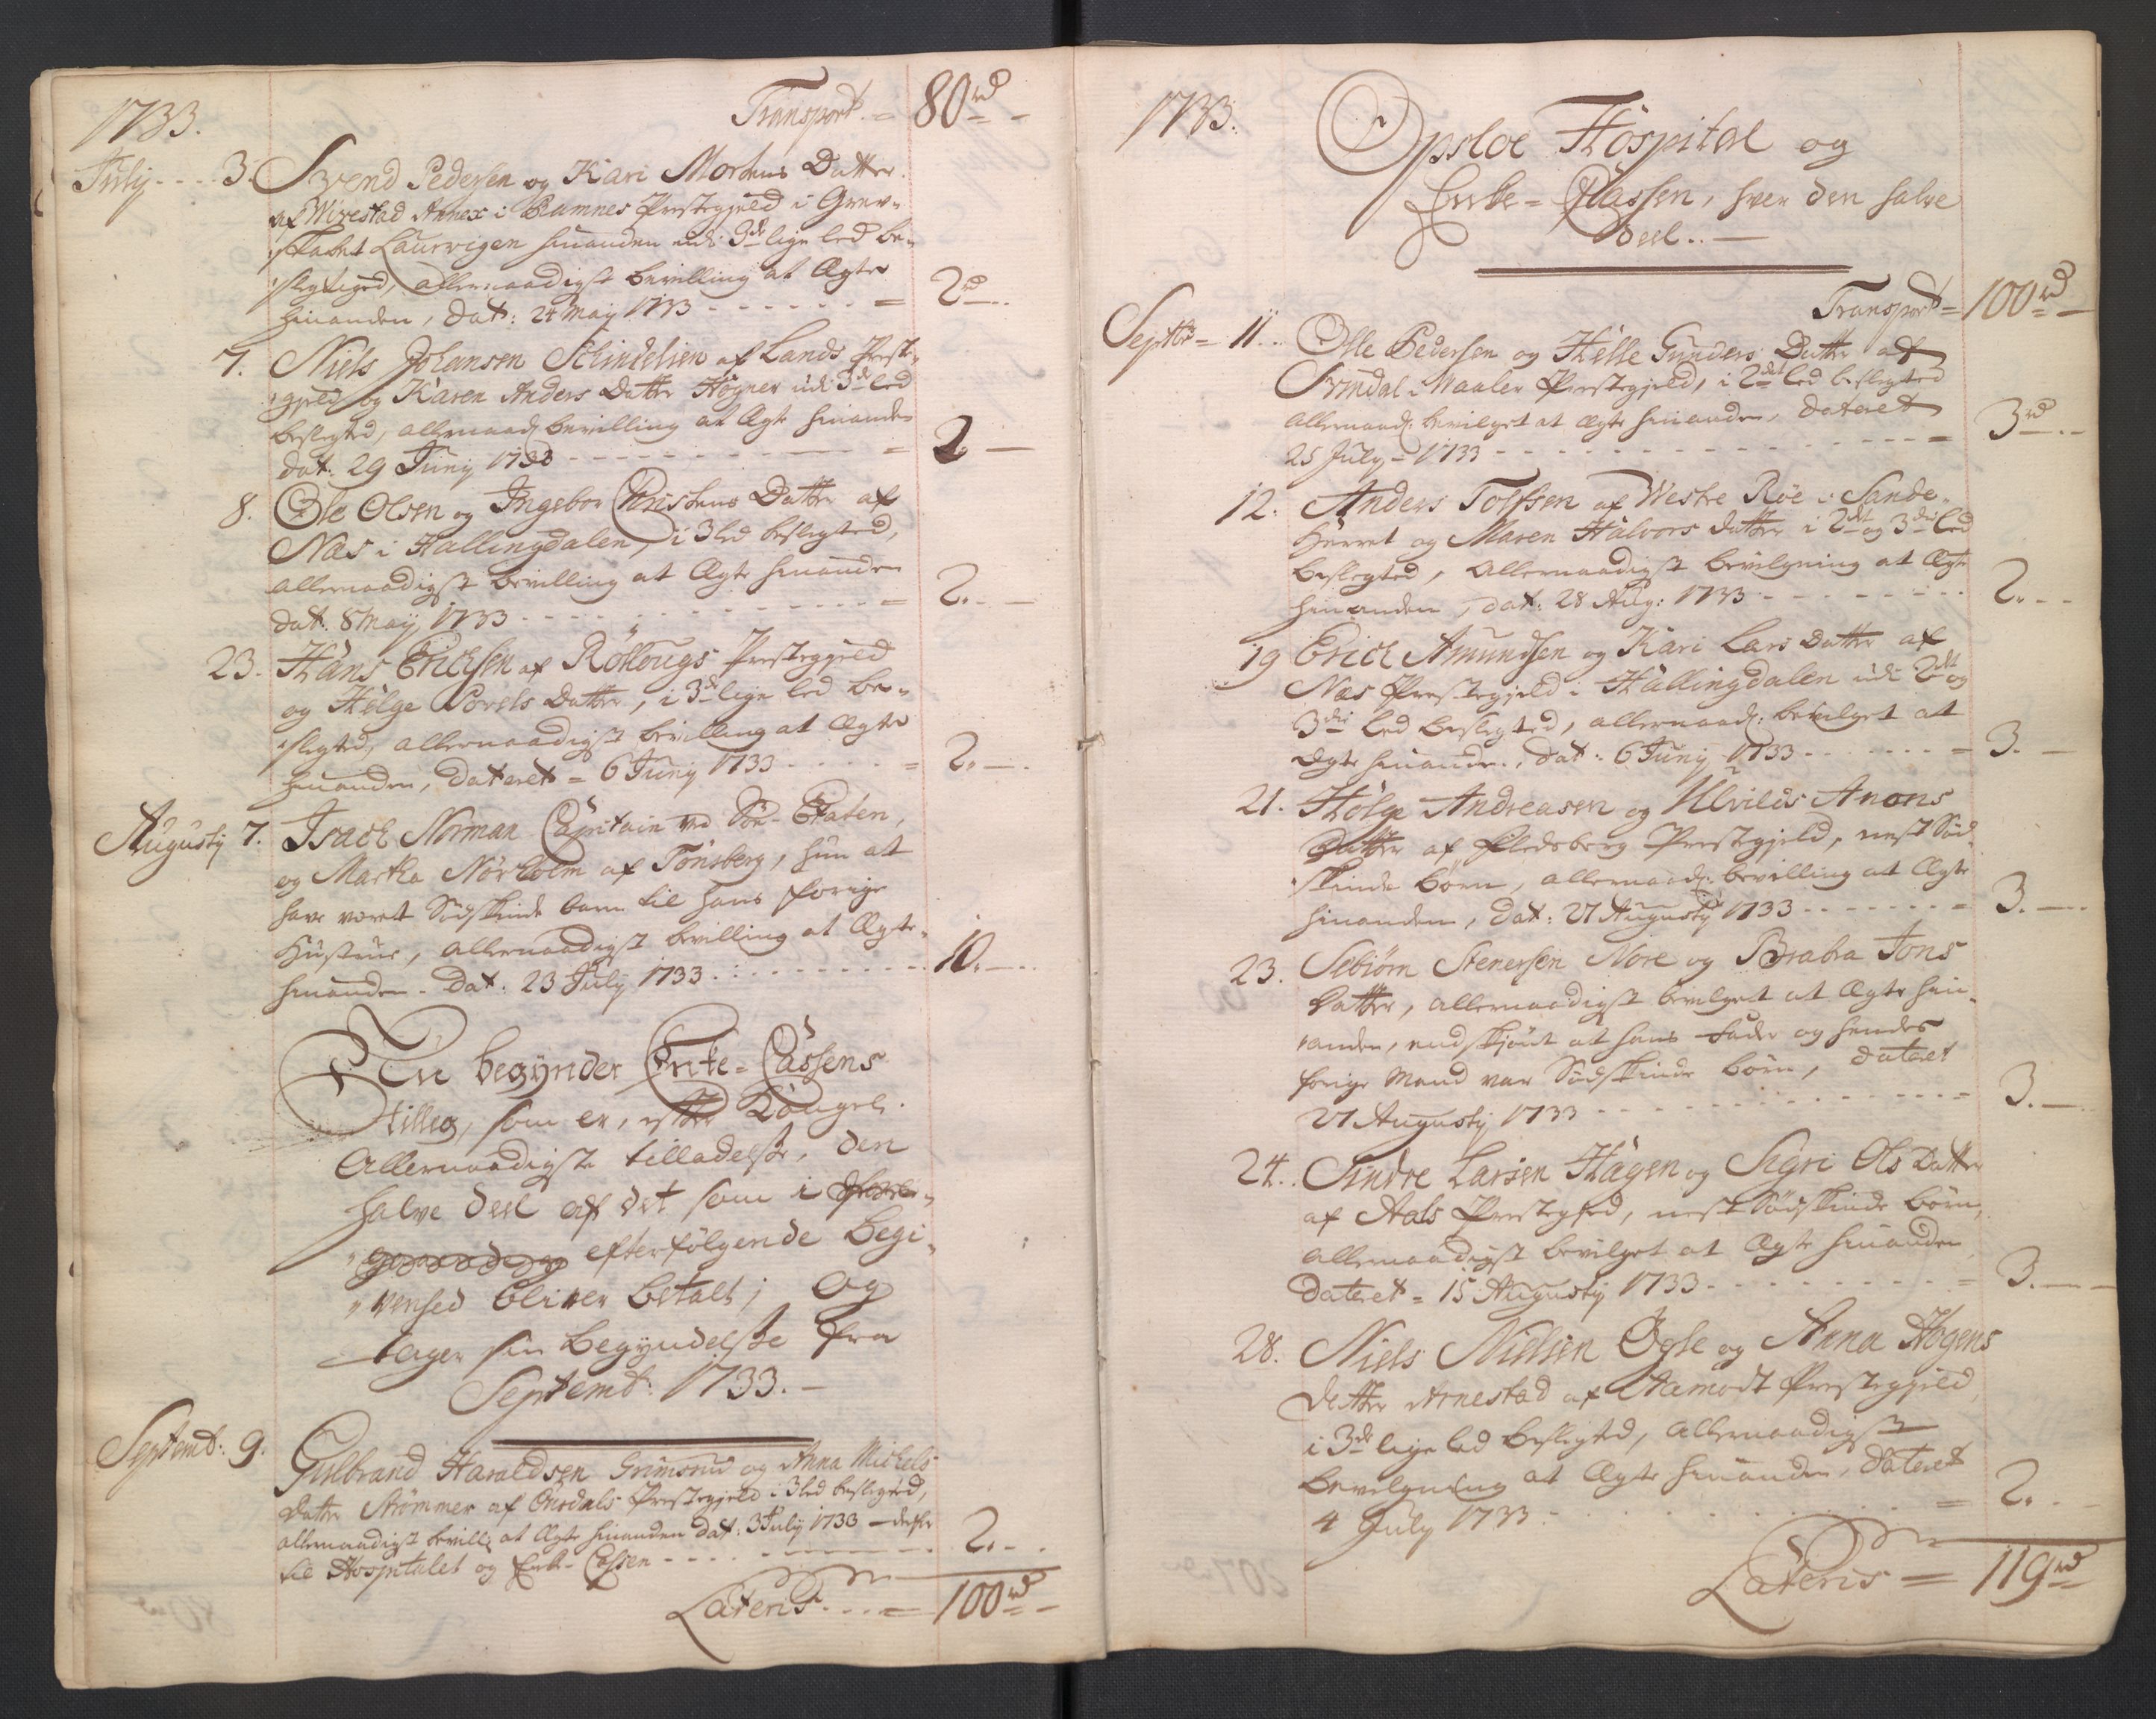 1733.
Transport. = 80 rd
July - - - 3. Svend Pedersen og Kari Mortens Datter
af Wivestad Annex i Ramnes Prestegjeld i Grev-
skabet Laurvigen hinanden udi 3de lige led be-
slegtiged, allernaadigst bevilling at Ægte
hinanden, dat: 24 May 1733 - - - - - = 2 rd
7. Niels Johansen Schindelien af Lands Prest-
gjeld og Karen Anders Datter Høgner udi 3de led
beslegted, allernaad. bevilling at Ægte hinanden
dat. 29 Juny 1733 - - - - - = 2. -
8. Ole Olsen og Ingebor Christens Datter af
Næs i Hallingdalen, i 3 led beslegted,
allernaadigst bevilling at Ægte hinanden
dat: 8 May 1733 - - - - - = 2. -
23. Hans Ericksen af Rollougs Prestegjeld
og Helge Povels Datter, i 3de lige led be-
slegted, allernaadigst bevilling at Ægte
hinanden, dateret = 6 Juny 1733 - - - - = 2. -
Augusty 7. Isack Norman Capitain ved Søe-Etaten,
og Martha Nørholm af Tønsberg, hun at
have været Sødskinde barn til hans forige
Hustrue, allernaadigst bevilling at Ægte
hinanden. Dat: 23 July 1733 - - - - - 10. -
Nu begynder Enke-Cassens
tilleg, som er, efter Kongel.
Allernaadigste tilladelse, den
halve deel af det som i
efterfølgende begi-
venhed bliver betalt; Og
tager sin begyndelse fra
Septemb: 1733. -
Septemb: 9. Gulbrand Haraldsen Grimsrud og Anna Michels
Datter Strømmer af Prestegjeld i 3 led beslegted,
allernaadigst bevill. at Ægte hinanden dat: 3 July 1733 -
til Hospitalet og Enke-Cassen - - - - - 2. -
Lateris. - - = 100 rd
1733.
Opsloe Hospital og
Enke-Cassen, hver den halve
Deel. -
Transport = 100 rd
Septbr = 11. Olle Pedersen og Helle Gunders Datter af
Svindal i Maaler Prestegjeld, i 2det led beslegted
Allernaad: bevilget at ægte hinanden, dateret
25 July - 1733 - - - - - = 3 rd
12. Anders Tolfsen af Westre Røe i Sande-
Herret og Maren Halvors datter i 2det og 3die led
beslegted, Allernaadigst bevilgning at Ægte
hinanden, dat: 28 Aug: 1733 - - - - - 2. -
19 Erick Amundsen og Kari Lars Datter af
Næs Prestegjeld i Hallingdalen udi 2det og
3die led beslegted, allernaad: bevilget at
Ægte hinanden, dat: 6 Juny 1733 - - - - = 3. -
21. Helge Andreasen og Ulvilds Anons
Datter af Fledsberg Prestegjeld, nest Sød-
skinde børn, allernaad: bevilling at Ægte
hinanden, dat: 27 Augusty 1733 - - - - = 3. -
23. Sebiørn Stenersen Nore og Brabra Jons
Datter, allernaadigst bevilget at Ægte hin-
anden, endskjønt at hans Fader og hendes
forige Mand var Sødskinde børn, dateret
27 Augusty 1733 - - - - - = 3. -
24. Sindre Larsen Hagen og Sigri Ols Datter
af Aals Prestegjeld, nest Sødskinde børn,
allernaadigst bevilget at Ægte hinanden
dateret = 15 Augusty 1733 - - - - - = 3. -
28. Niels Nielsen Øgle og Anna Hogens
Datter Arnestad af Aamodt Prestegjeld,
i 3de lige led beslegted, allernaadigst
bevilgning at Ægte hinanden, dateret
4 July 1733 - - - - - = 2. -
Lateris = 119 rd